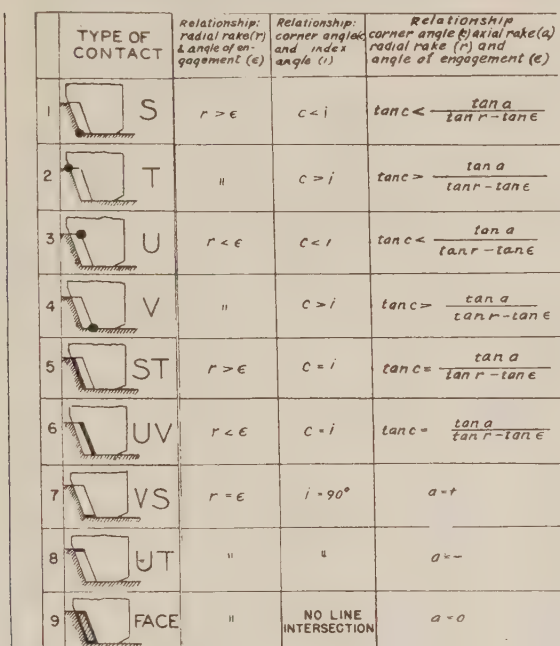 TYPE OF CONTACT
Relationship: radial rake (r) & angle of engagement (ϵ)
Relationship: corner angle(c) and index angle (i)
Relationship corner angle (c) axial rake (a) radial rake (r) and angle of engagement (ϵ)
1 S r > ϵ c < i tan c < tan a / tan r - tan ϵ
2 T " c > i tan c > tan a / tan r - tan ϵ
3 U r < ϵ c < i tan c < tan a / tan r - tan ϵ
4 V " c > i tan c > tan a / tan r - tan ϵ
5 ST r > ϵ c = i tan c = tan a / tan r - tan ϵ
6 UV r < ϵ c = i tan c = tan a / tan r - tan ϵ
7 VS r = ϵ i = 90° a = +
8 UT " " a = -
9 FACE " NO LINE INTERSECTION a = 0